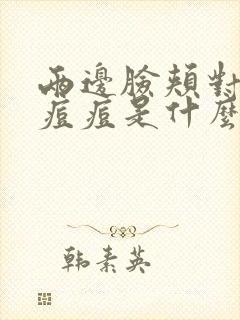 兩邊臉頰對
痘痘是什麼
韩素英